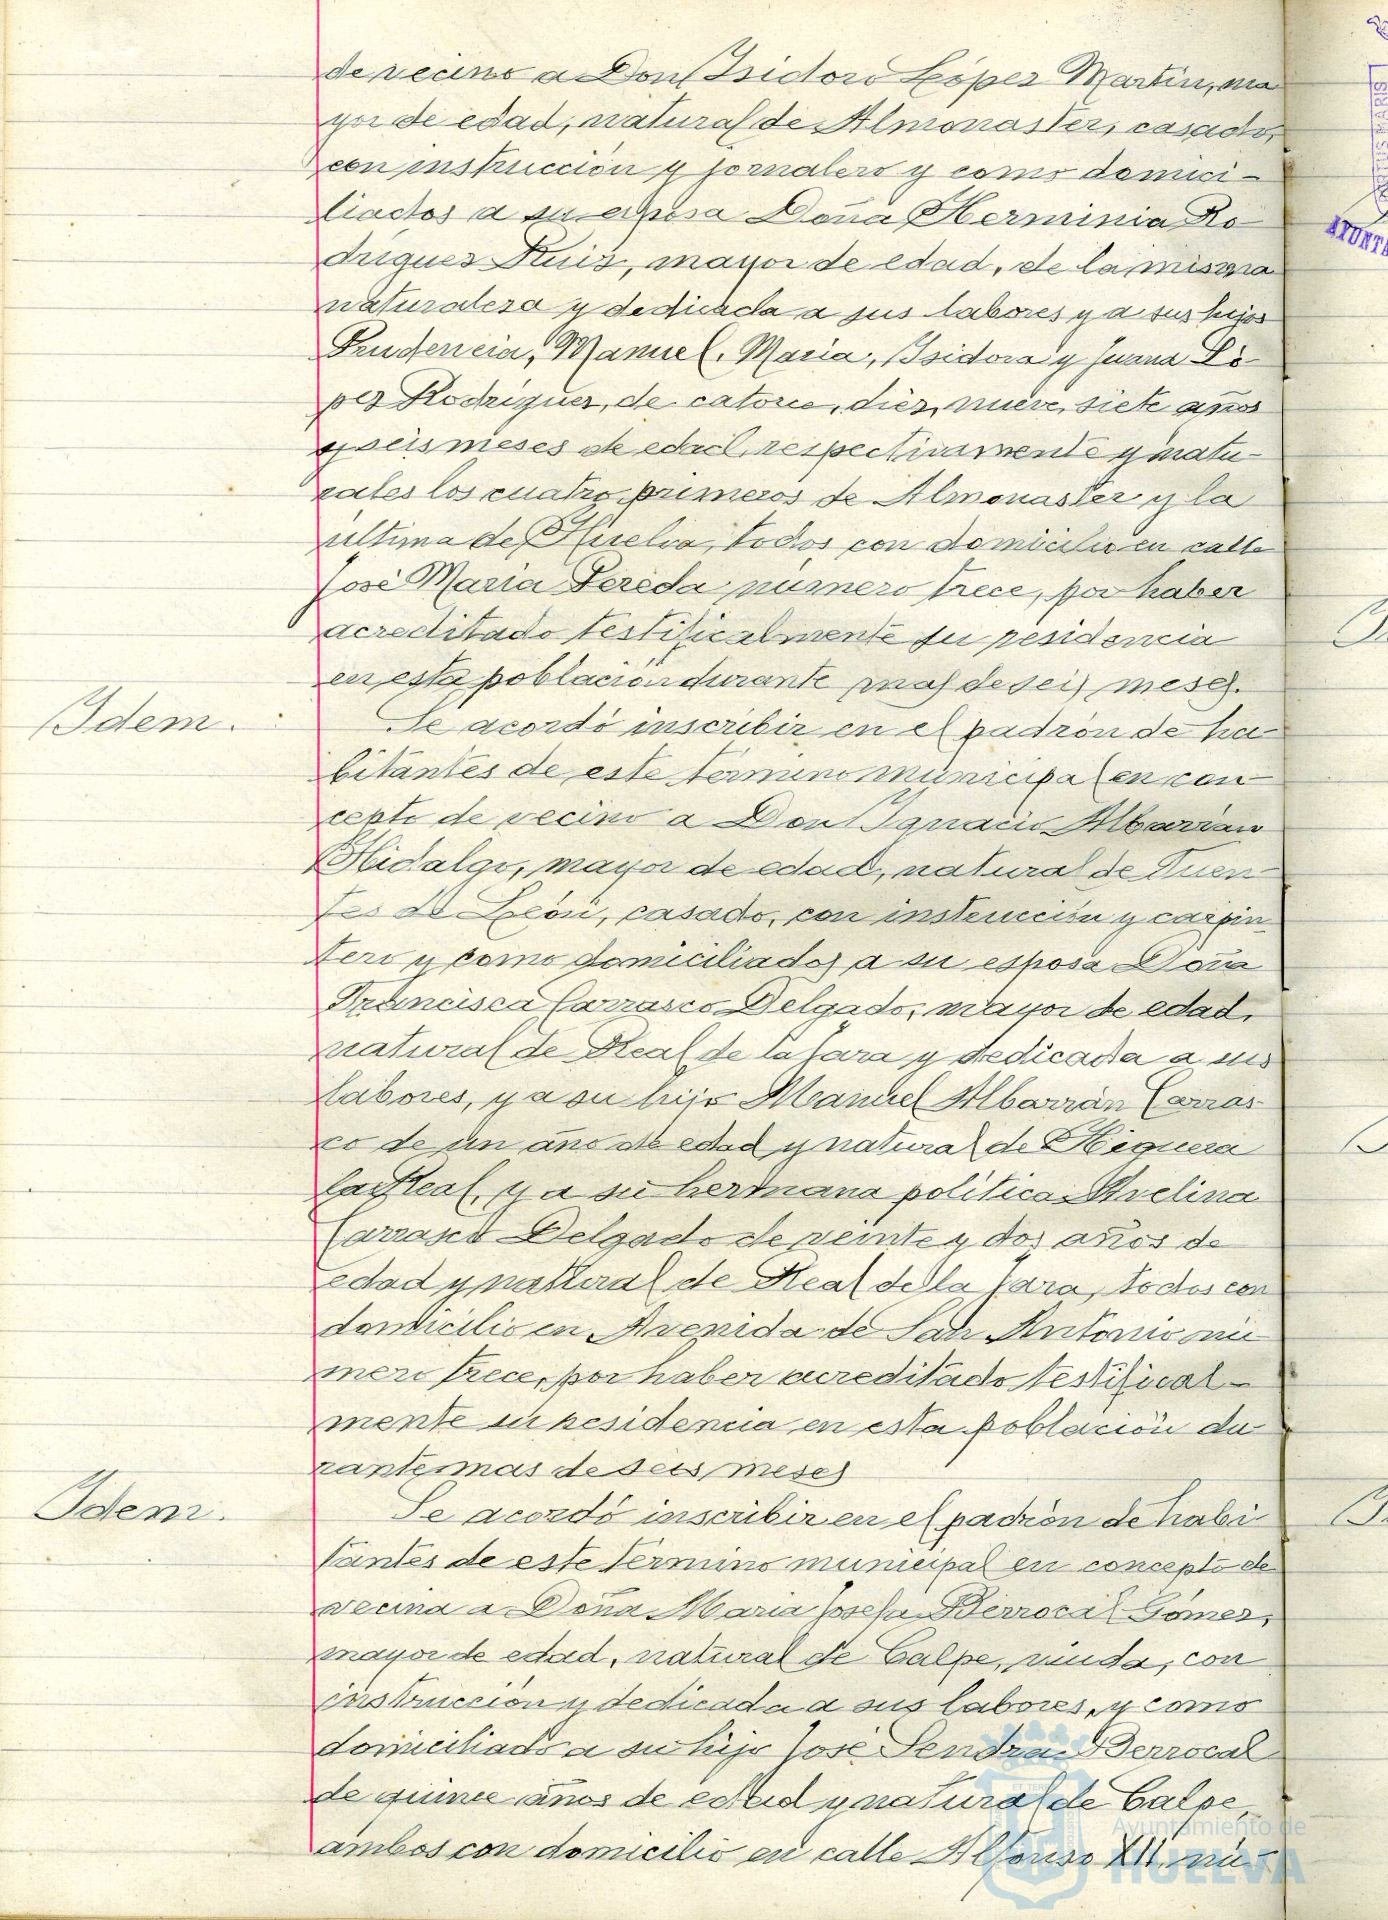 de vecino a Don Isidoro López Martín, ma
yor de edad, natural de Almonaster, casado,
con instrucción y jornalero y como domici-
liados a su esposa Doña Herminia Ro
driguez Ruiz, mayor de edad, de la misma
naturaleza y dedicada a sus labores y a sus hijos
Prudencia, Manuel, Maria, Isidora y Juana Ló
pez Rodríguez, de catorce, diez, nueve, siete años
y seis meses de edad, respectivamente y natu-
rales los cuatro primeros de Almonaster y la
última de Huelva, todos con domicilio en calle
José Maria Pereda número trece, por haber
acreditado testificalmente su residencia
en esta población durante mas de seis meses.
Idem.
Se acordó inscribir en el padrón de ha-
bitantes de este término municipal en con-
cepto de vecino a Don Ignacio Albarrán
Hidalgo, mayor de edad, natural de Fuen-
tes de León, casado, con instrucción y carpin-
tero y como domiciliados a su esposa Doña
Francisca Carrasco Delgado, mayor de edad,
natural de Real de la Jara y dedicada a sus
labores, y a su hijo Manuel Albarrán Carras-
co de un año de edad y natural de Higuera
la Real, y a su hermana política Avelina
Carrasco Delgado de veinte y dos años de
edad y natural de Real de la Jara, todos con
domicilio en Avenida de San Antonio nú
mero trece, por haber acreditado testifical-
mente su residencia en esta población du
rante mas de seis meses
Idem.
Se acordó inscribir en el padrón de habi-
tantes de este término municipal en concepto de
vecina a Doña Maria Josefa Berrocal Gómez,
mayor de edad, natural de Calpe, viuda, con
instrucción y dedicada a sus labores, y como
domiciliado a su hijo José Sendra Berrocal
de quince años de edad y natural de Calpe,
ambos con domicilio en calle Alfonso XII, nú-
Ayuntamiento de
HUELVA
AYUNTA